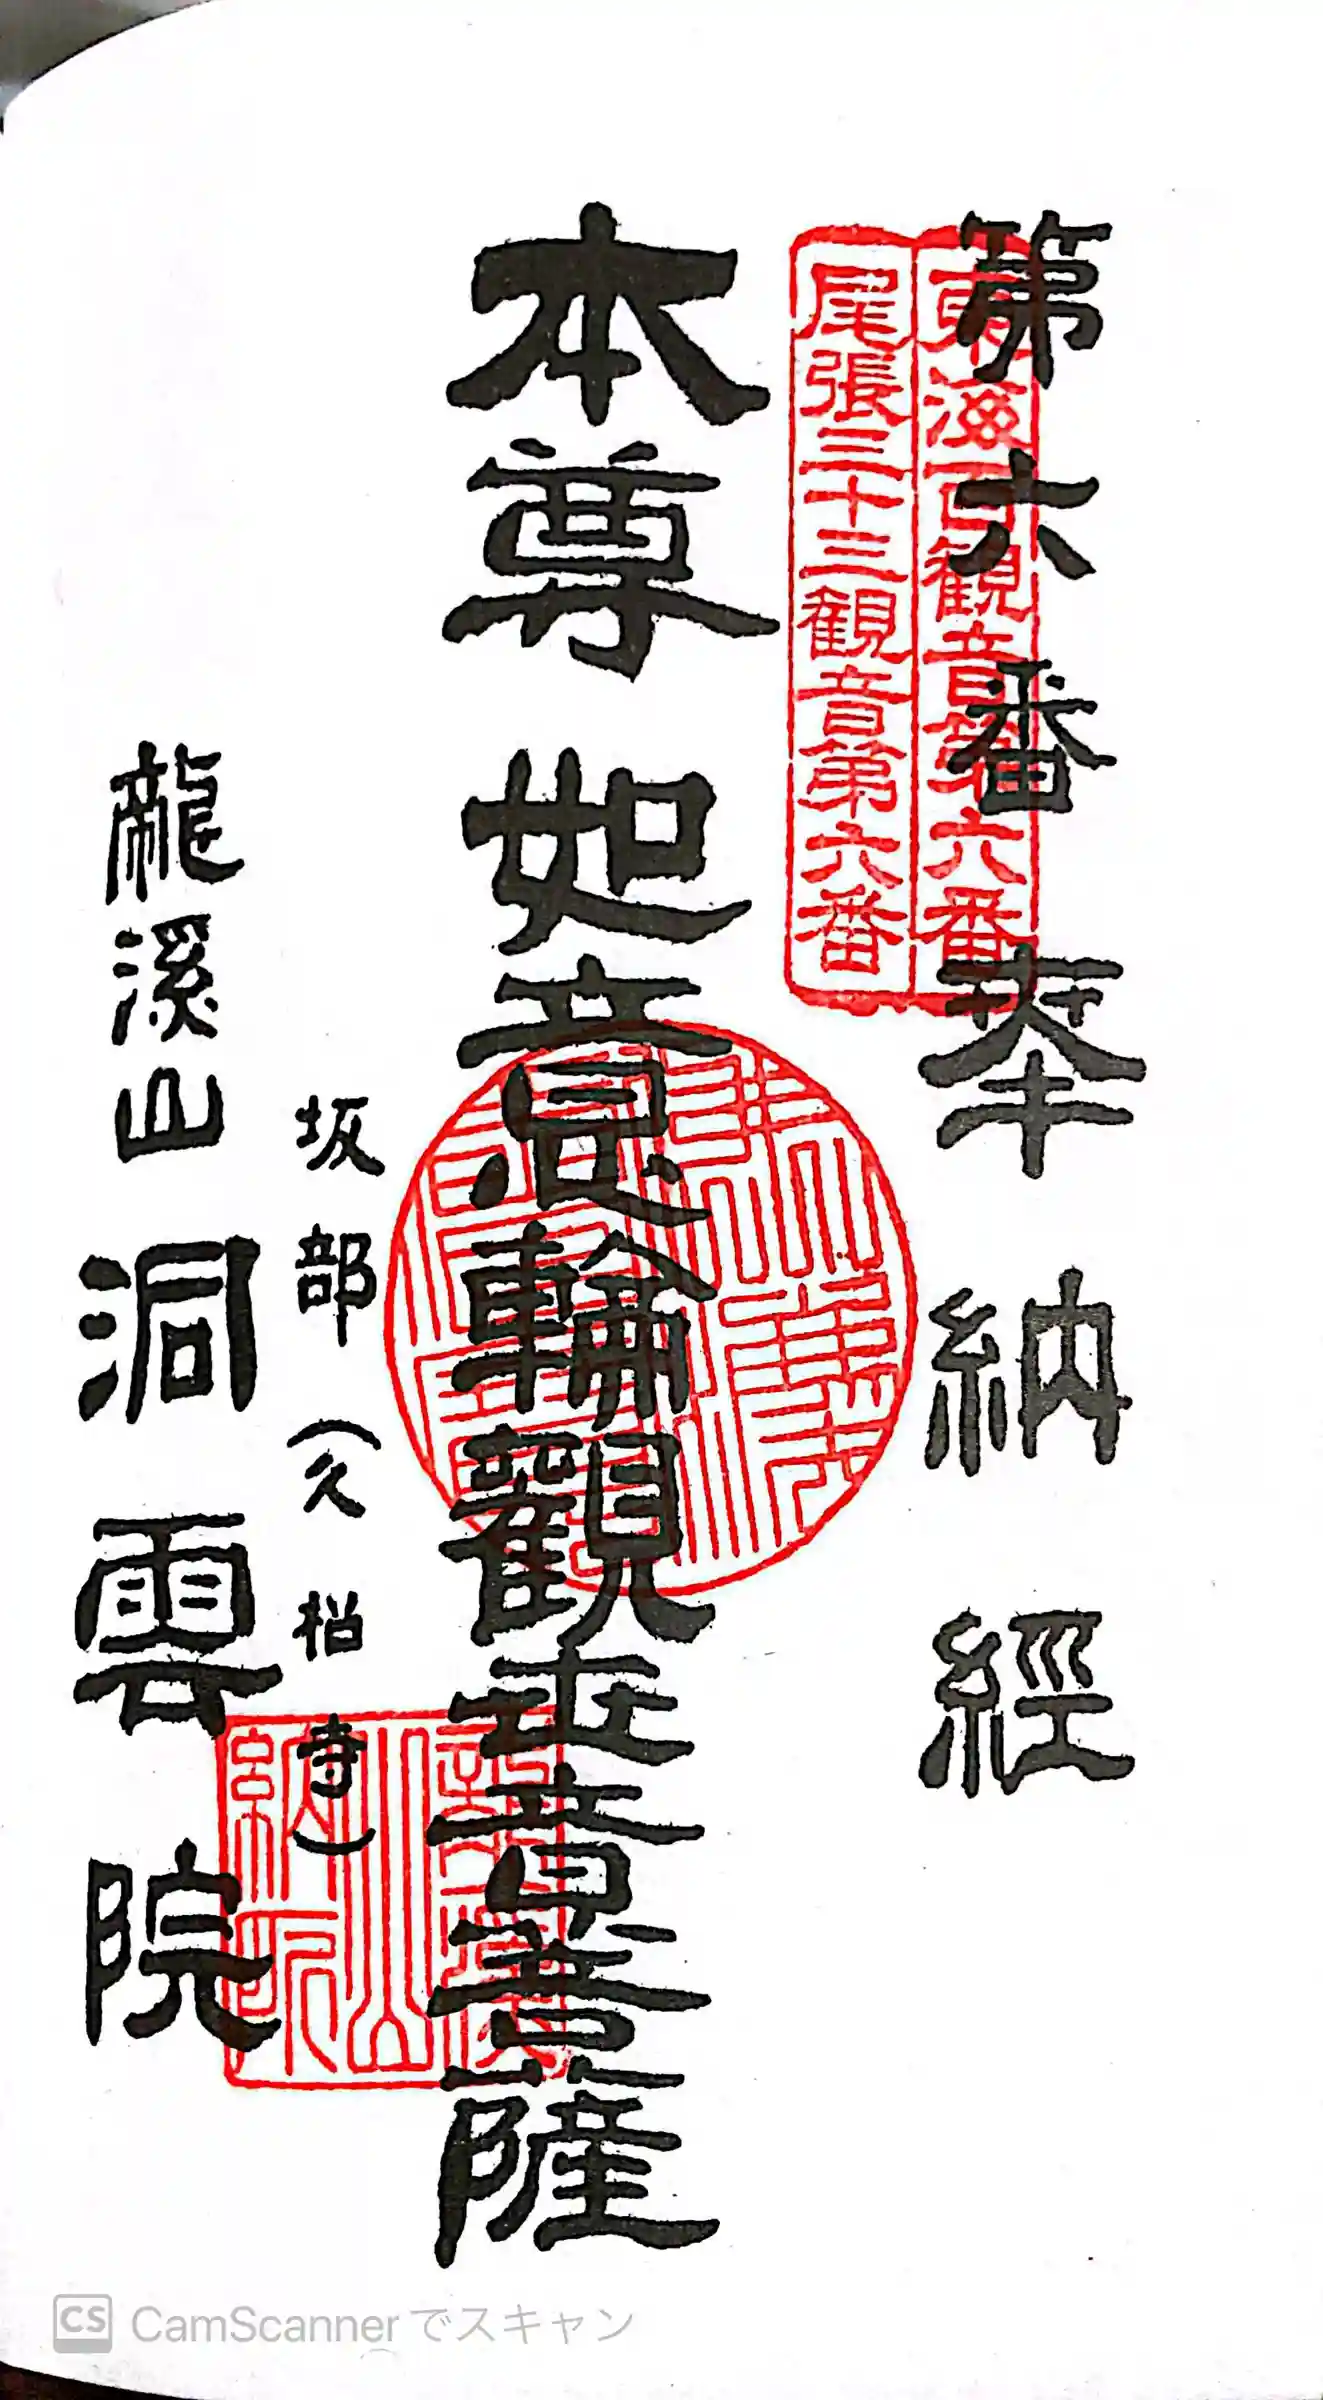 第六番 奉納經
東海百観音第六番
尾張三十三観音第六番
本尊 如意輪觀世音菩薩
坂部(久松寺)
龍溪山 洞雲院
CS CamScannerでスキャン